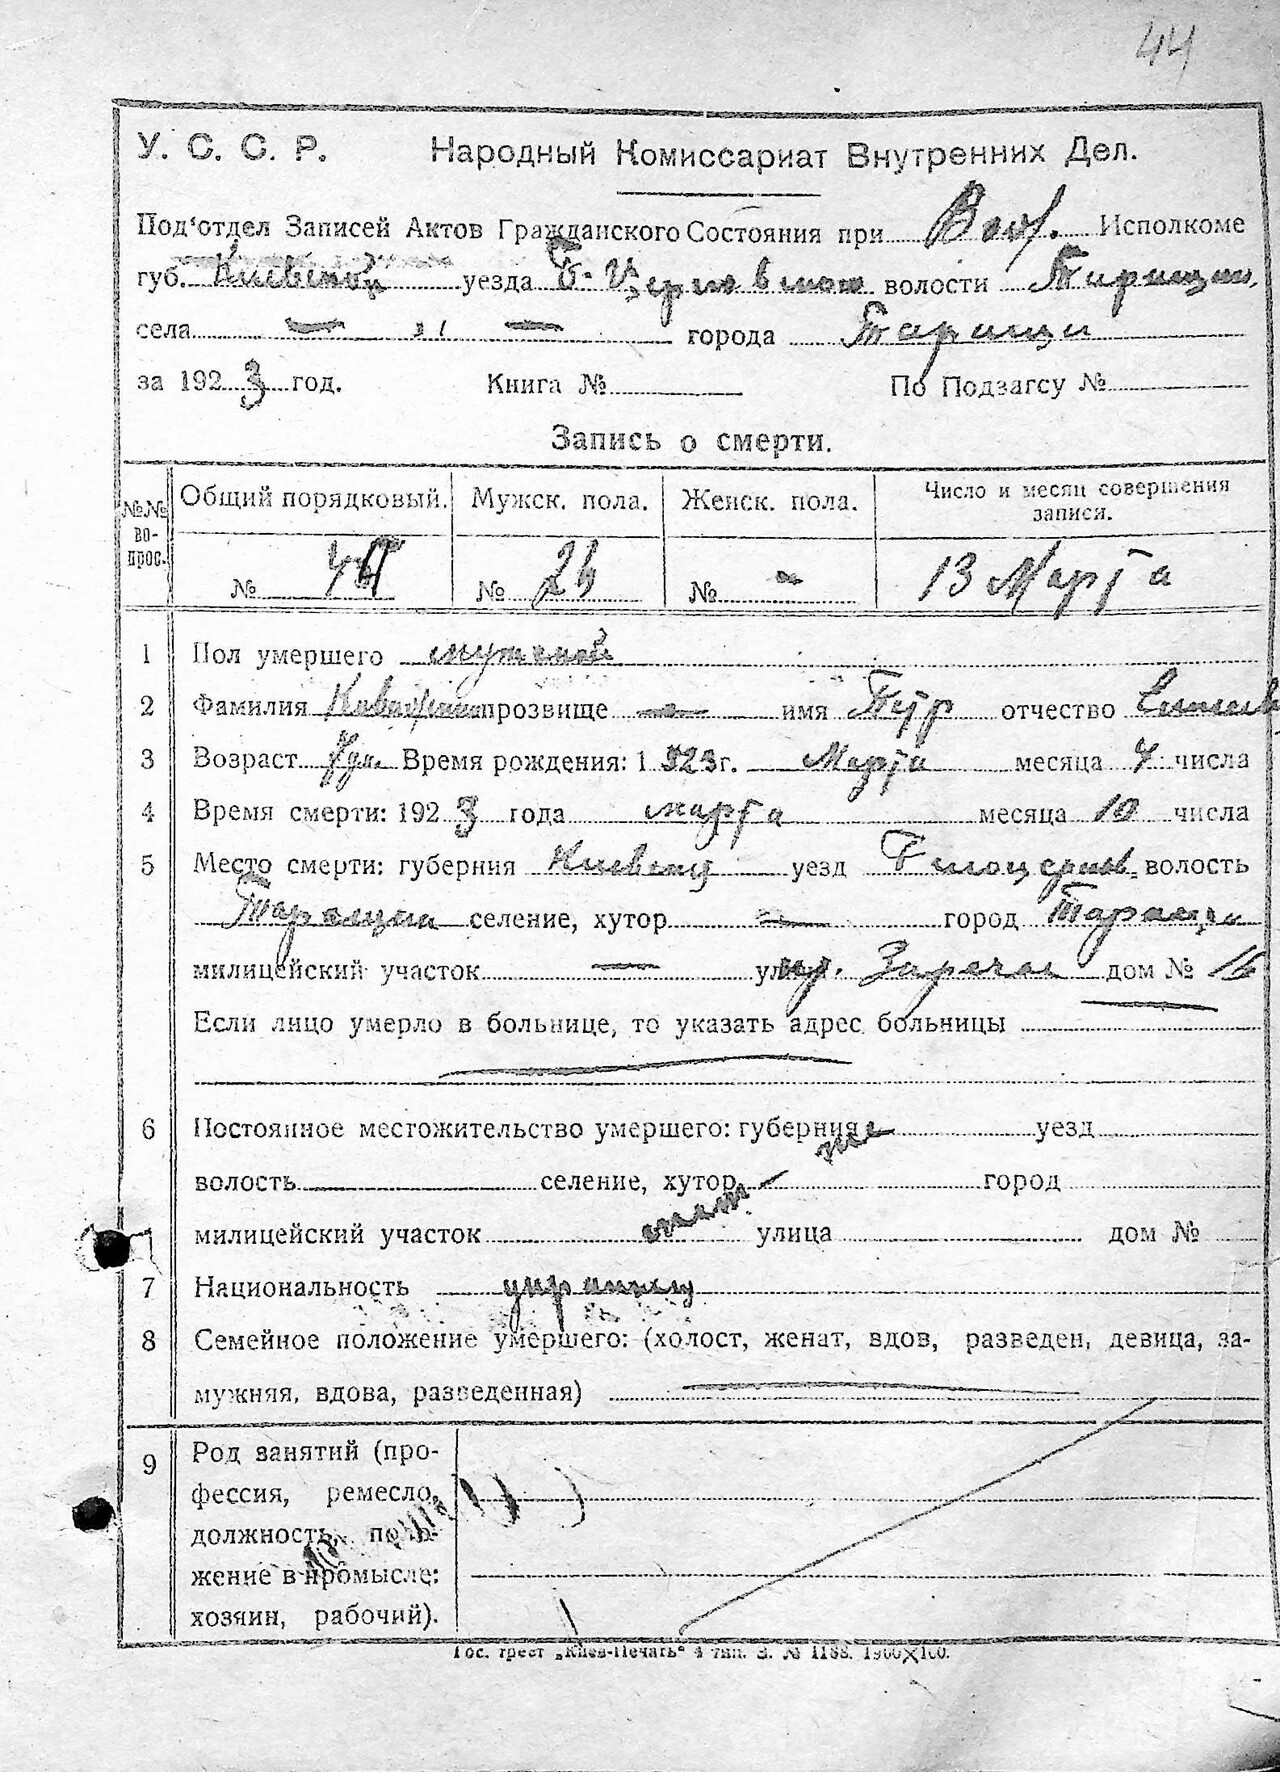 44
У. С. С. Р. Народный Комиссариат Внутренних Дел.
Под‘отдел Записей Актов Гражданского Состояния при Исполкоме
губ. Киевской уезда Б-Церковского волости
села — — города Таращи
за 1923 год. Книга № По Подзагсу №
Запись о смерти.
№№ вопрос. Общий порядковый. Мужск. пола. Женск. пола. Число и месяц совершения записи.
№ 44 № 26 № - 13 Марта
1 Пол умершего мужской
2 Фамилия прозвище — имя Петр отчество
3 Возраст Время рождения: 1923г. Марта месяца 7 числа
4 Время смерти: 1923 года марта месяца 10 числа
5 Место смерти: губерния Киевская уезд Белоцерков. волость
селение, хутор — город Тараща
милицейский участок — улица ул. дом № 16
Если лицо умерло в больнице, то указать адрес больницы
6 Постоянное местожительство умершего: губерния уезд
волость селение, хутор город
милицейский участок улица дом №
там же
7 Национальность украинец
8 Семейное положение умершего: (холост, женат, вдов, разведен, девица, за-
мужняя, вдова, разведенная)
9 Род занятий (про-
фессия, ремесло,
должность, поло-
жение в промысле:
хозяин, рабочий).
Гос. трест „Киев-Печать“ 4 тип. З. № 1168. 1900×100.